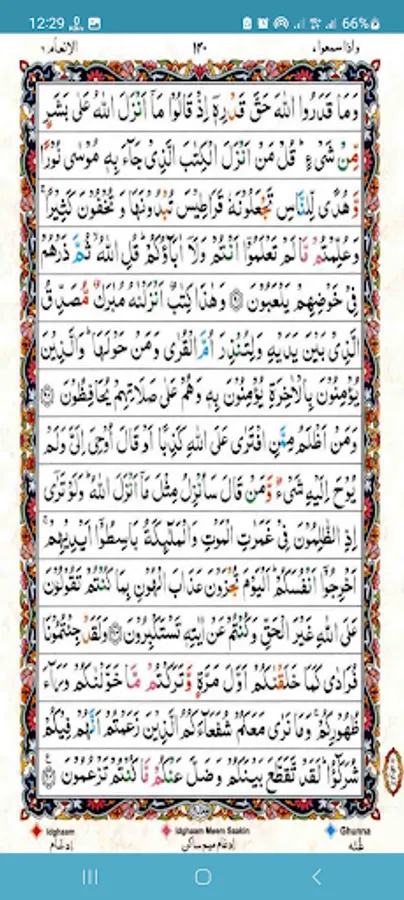 12:29 66%
الانعام ٦ ١٣٠ واذا سمعوا ٧
وَمَا قَدَرُوا اللّٰهَ حَقَّ قَدْرِهٖۤ اِذْ قَالُوْا مَاۤ اَنْزَلَ اللّٰهُ عَلٰى بَشَرٍ
مِّنْ شَیْءٍ ؕ قُلْ مَنْ اَنْزَلَ الْكِتٰبَ الَّذِیْ جَآءَ بِهٖ مُوْسٰى نُوْرًا
وَّ هُدًی لِّلنَّاسِ تَجْعَلُوْنَهٗ قَرَاطِیْسَ تُبْدُوْنَهَا وَ تُخْفُوْنَ كَثِیْرًا ۚ
وَ عُلِّمْتُمْ مَّا لَمْ تَعْلَمُوْۤا اَنْتُمْ وَلَاۤ اٰبَآؤُكُمْ ؕ قُلِ اللّٰهُ ۙ ثُمَّ ذَرْهُمْ
فِیْ خَوْضِهِمْ یَلْعَبُوْنَ ۝۹۱ وَ هٰذَا كِتٰبٌ اَنْزَلْنٰهُ مُبٰرَكٌ مُّصَدِّقُ
الَّذِیْ بَیْنَ یَدَیْهِ وَ لِتُنْذِرَ اُمَّ الْقُرٰى وَ مَنْ حَوْلَهَا ؕ وَ الَّذِیْنَ
یُؤْمِنُوْنَ بِالْاٰخِرَةِ یُؤْمِنُوْنَ بِهٖ وَ هُمْ عَلٰى صَلَاتِهِمْ یُحَافِظُوْنَ ۝۹۲
وَ مَنْ اَظْلَمُ مِمَّنِ افْتَرٰى عَلَى اللّٰهِ كَذِبًا اَوْ قَالَ اُوْحِیَ اِلَیَّ وَ لَمْ
یُوْحَ اِلَیْهِ شَیْءٌ وَّ مَنْ قَالَ سَاُنْزِلُ مِثْلَ مَاۤ اَنْزَلَ اللّٰهُ ؕ وَ لَوْ تَرٰۤى
اِذِ الظّٰلِمُوْنَ فِیْ غَمَرٰتِ الْمَوْتِ وَ الْمَلٰٓئِكَةُ بَاسِطُوْۤا اَیْدِیْهِمْ ۚ
اَخْرِجُوْۤا اَنْفُسَكُمْ ؕ اَلْیَوْمَ تُجْزَوْنَ عَذَابَ الْهُوْنِ بِمَا كُنْتُمْ تَقُوْلُوْنَ
عَلَى اللّٰهِ غَیْرَ الْحَقِّ وَ كُنْتُمْ عَنْ اٰیٰتِهٖ تَسْتَكْبِرُوْنَ ۝۹۳ وَ لَقَدْ جِئْتُمُوْنَا
فُرَادٰى كَمَا خَلَقْنٰكُمْ اَوَّلَ مَرَّةٍ وَّ تَرَكْتُمْ مَّا خَوَّلْنٰكُمْ وَرَآءَ
ظُهُوْرِكُمْ ۚ وَ مَا نَرٰى مَعَكُمْ شُفَعَآءَكُمُ الَّذِیْنَ زَعَمْتُمْ اَنَّهُمْ فِیْكُمْ
شُرَكٰٓؤُا ؕ لَقَدْ تَّقَطَّعَ بَیْنَكُمْ وَ ضَلَّ عَنْكُمْ مَّا كُنْتُمْ تَزْعُمُوْنَ ۝۹۴
Idghaam Idghaam Meem Saakin Ghunna
إدغام إدغام ميم ساكن غنّه